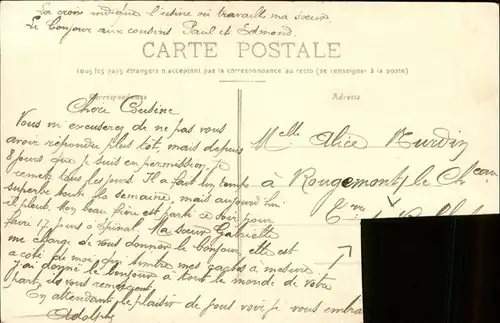 La croix indique l'usine où travaille ma soeur
Le bonjour aux cousins Paul et Edmond.
CARTE POSTALE
Tous les pays étrangers n'acceptent pas la correspondance au recto (se renseigner à la poste)
Correspondance
Adresse
Chère Cousine
Vous m'excuserez de ne pas vous
avoir répondu plus tôt, mais depuis
8 jours que je suis en permission je
remets tous les jours. Il a fait un temps
superbe toute la semaine, mais aujourd'hui
il pleut. Mon beau frère est parti ce soir pour
faire 17 jours à Epinal. Ma soeur Gabrielle
me charge de vous donner le bonjour, elle est
à côté de moi qui mes à mesure.
j'ai donné le bonjour à tout le monde de votre
part, ils vous remercient.
En attendant le plaisir de vous voir je vous embra
Adolphe
Melle Alice Nurdin
à Rougemont le Château